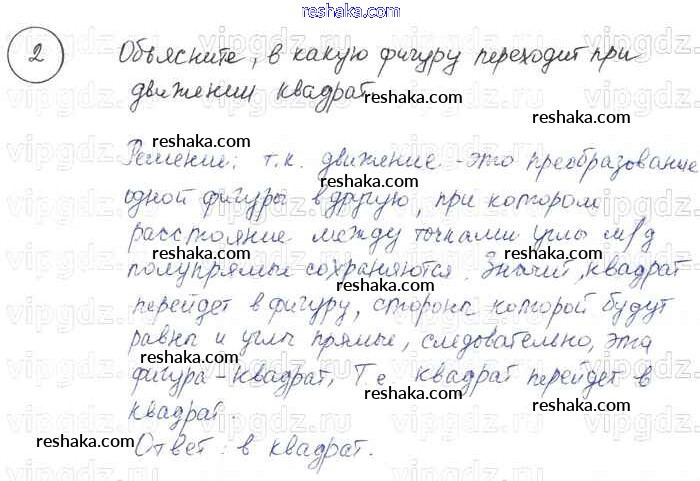 reshaka.com
2 Объясните, в какую фигуру переходит при
движении квадрат.
reshaka.com
reshaka.com
Решение: т.к. движение - это преобразование
reshaka.com
одной фигуры в другую, при котором
расстояние между точками углы м/д
reshaka.com
полупрямые сохраняются. Значит, квадрат
перейдет в фигуру, стороны которой будут
равны и углы прямые, следовательно, эта
reshaka.com
фигура - квадрат, Т.е. квадрат перейдет в
reshaka.com
квадрат.
reshaka.com
reshaka.com
Ответ: в квадрат.